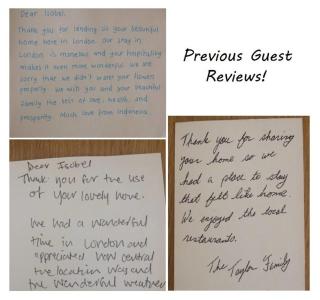 Dear Isobel.
Thank you for lending us your beautiful
home here in London. Our stay in
London is monetous and your hospitality
makes it even more wonderful. We are
sorry that we didn't water your flowers
properly. We wish you and your beautiful
family the best of love, health, and
prosperity. Much love from Indonesia
Previous Guest
Reviews!
Dear Isobel
Thank you for the use
of your lovely home.
We had a wonderful
time in London and
appreciated how central
the location was and
the wonderful weather
Thank you for sharing
your home so we
had a place to stay
that felt like home.
We enjoyed the local
restaurants.
The Taylor Family